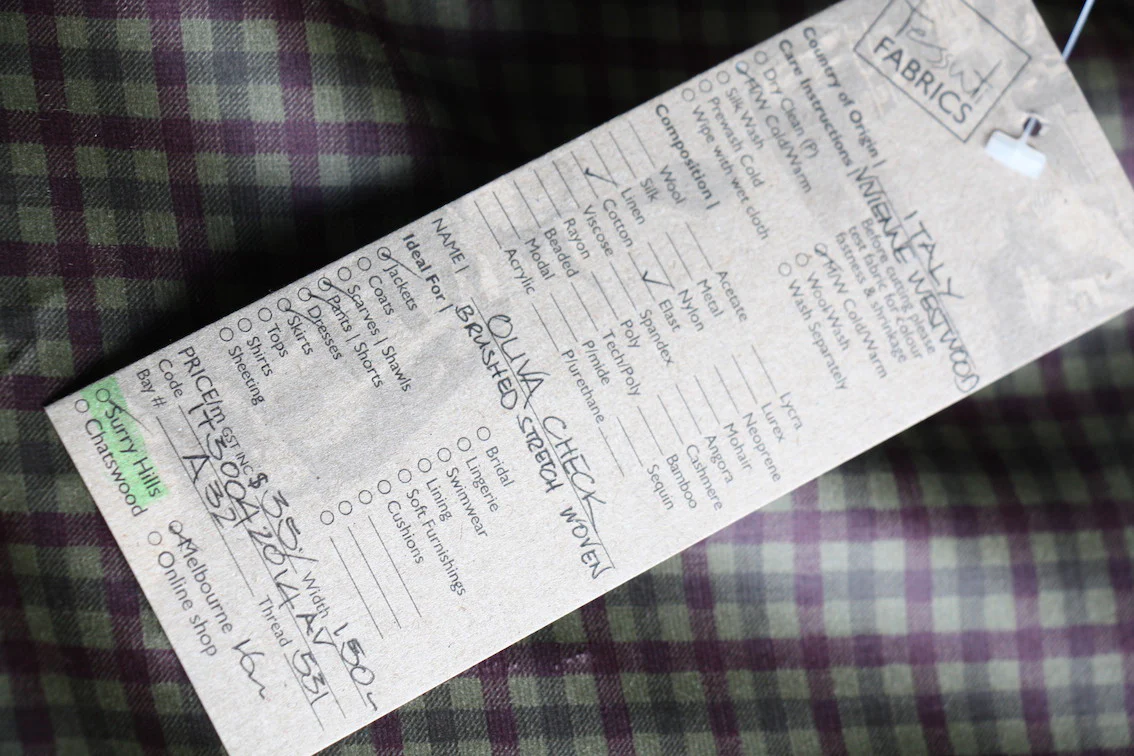 Tessuti
FABRICS
Country of Origin | ITALY
VIVIENNE WESTWOOD
Care Instructions |
Before cutting please
test fabric for colour
fastness & shrinkage
Dry Clean (P)
H/W Cold/Warm
Silk Wash
Prewash Cold
Wipe with wet cloth
M/W Cold/Warm
Wool Wash
Wash Separately
Composition |
Wool
Silk
Linen
Cotton
Viscose
Rayon
Beaded
Modal
Acrylic
Acetate
Metal
Nylon
Elast
Spandex
Poly
Tech/Poly
P/mide
P/urethane
Lycra
Lurex
Neoprene
Mohair
Angora
Cashmere
Bamboo
Sequin
NAME | OLIVA CHECK
BRUSHED STRETCH WOVEN
Ideal For |
Jackets
Coats
Scarves | Shawls
Pants | Shorts
Dresses
Skirts
Tops
Shirts
Sheeting
Bridal
Lingerie
Swimwear
Lining
Soft Furnishings
Cushions
PRICE/m GST INC $ 35./ Width 150
Code 173004 2014 AV 531
Bay #. A 32 Thread
Surry Hills
Chatswood
Melbourne
Online shop